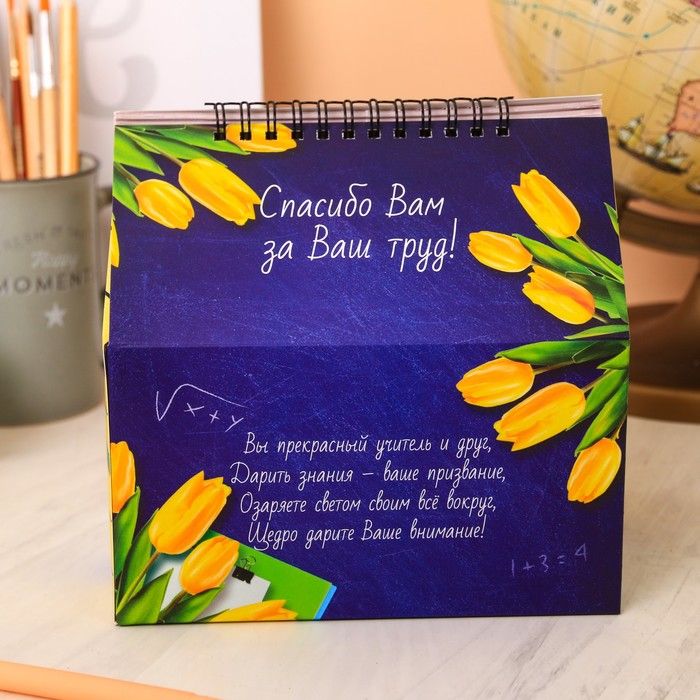 Спасибо Вам
за Ваш труд!
√x+y
Вы прекрасный учитель и друг,
Дарить знания – ваше призвание,
Озаряете светом своим всё вокруг,
Щедро дарите Ваше внимание!
1+3=4
Happy
MOMENT